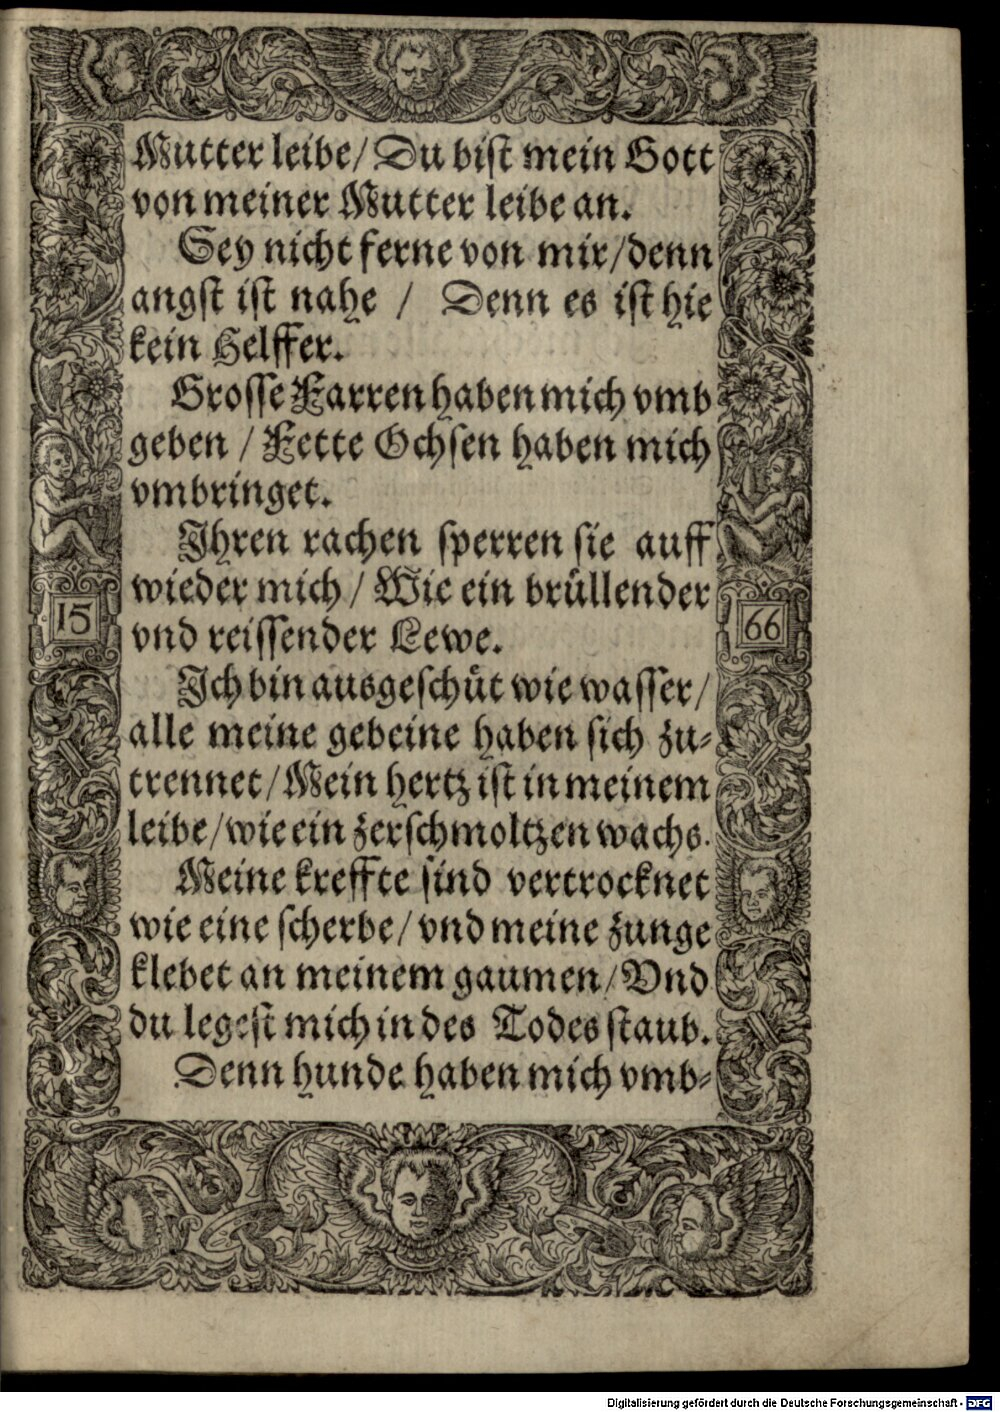 Mutter leibe/ Du bist mein Gott
von meiner Mutter leibe an.
Sey nicht ferne von mir/denn
angst ist nahe / Denn es ist hie
kein Helffer.
Grosse Farren haben mich vmb
geben / Fette Ochsen haben mich
vmbringet.
Ihren rachen sperren sie auff
wieder mich / Wie ein brüllender
vnd reissender Lewe.
15
66
Ich bin ausgeschüt wie wasser/
alle meine gebeine haben sich zu-
trennet/ Mein hertz ist in meinem
leibe/ wie ein zerschmoltzen wachs.
Meine kreffte sind vertrocknet
wie eine scherbe/ vnd meine zunge
klebet an meinem gaumen/ Vnd
du legest mich in des Todes staub.
Denn hunde haben mich vmb-
Digitalisierung gefördert durch die Deutsche Forschungsgemeinschaft - DFG